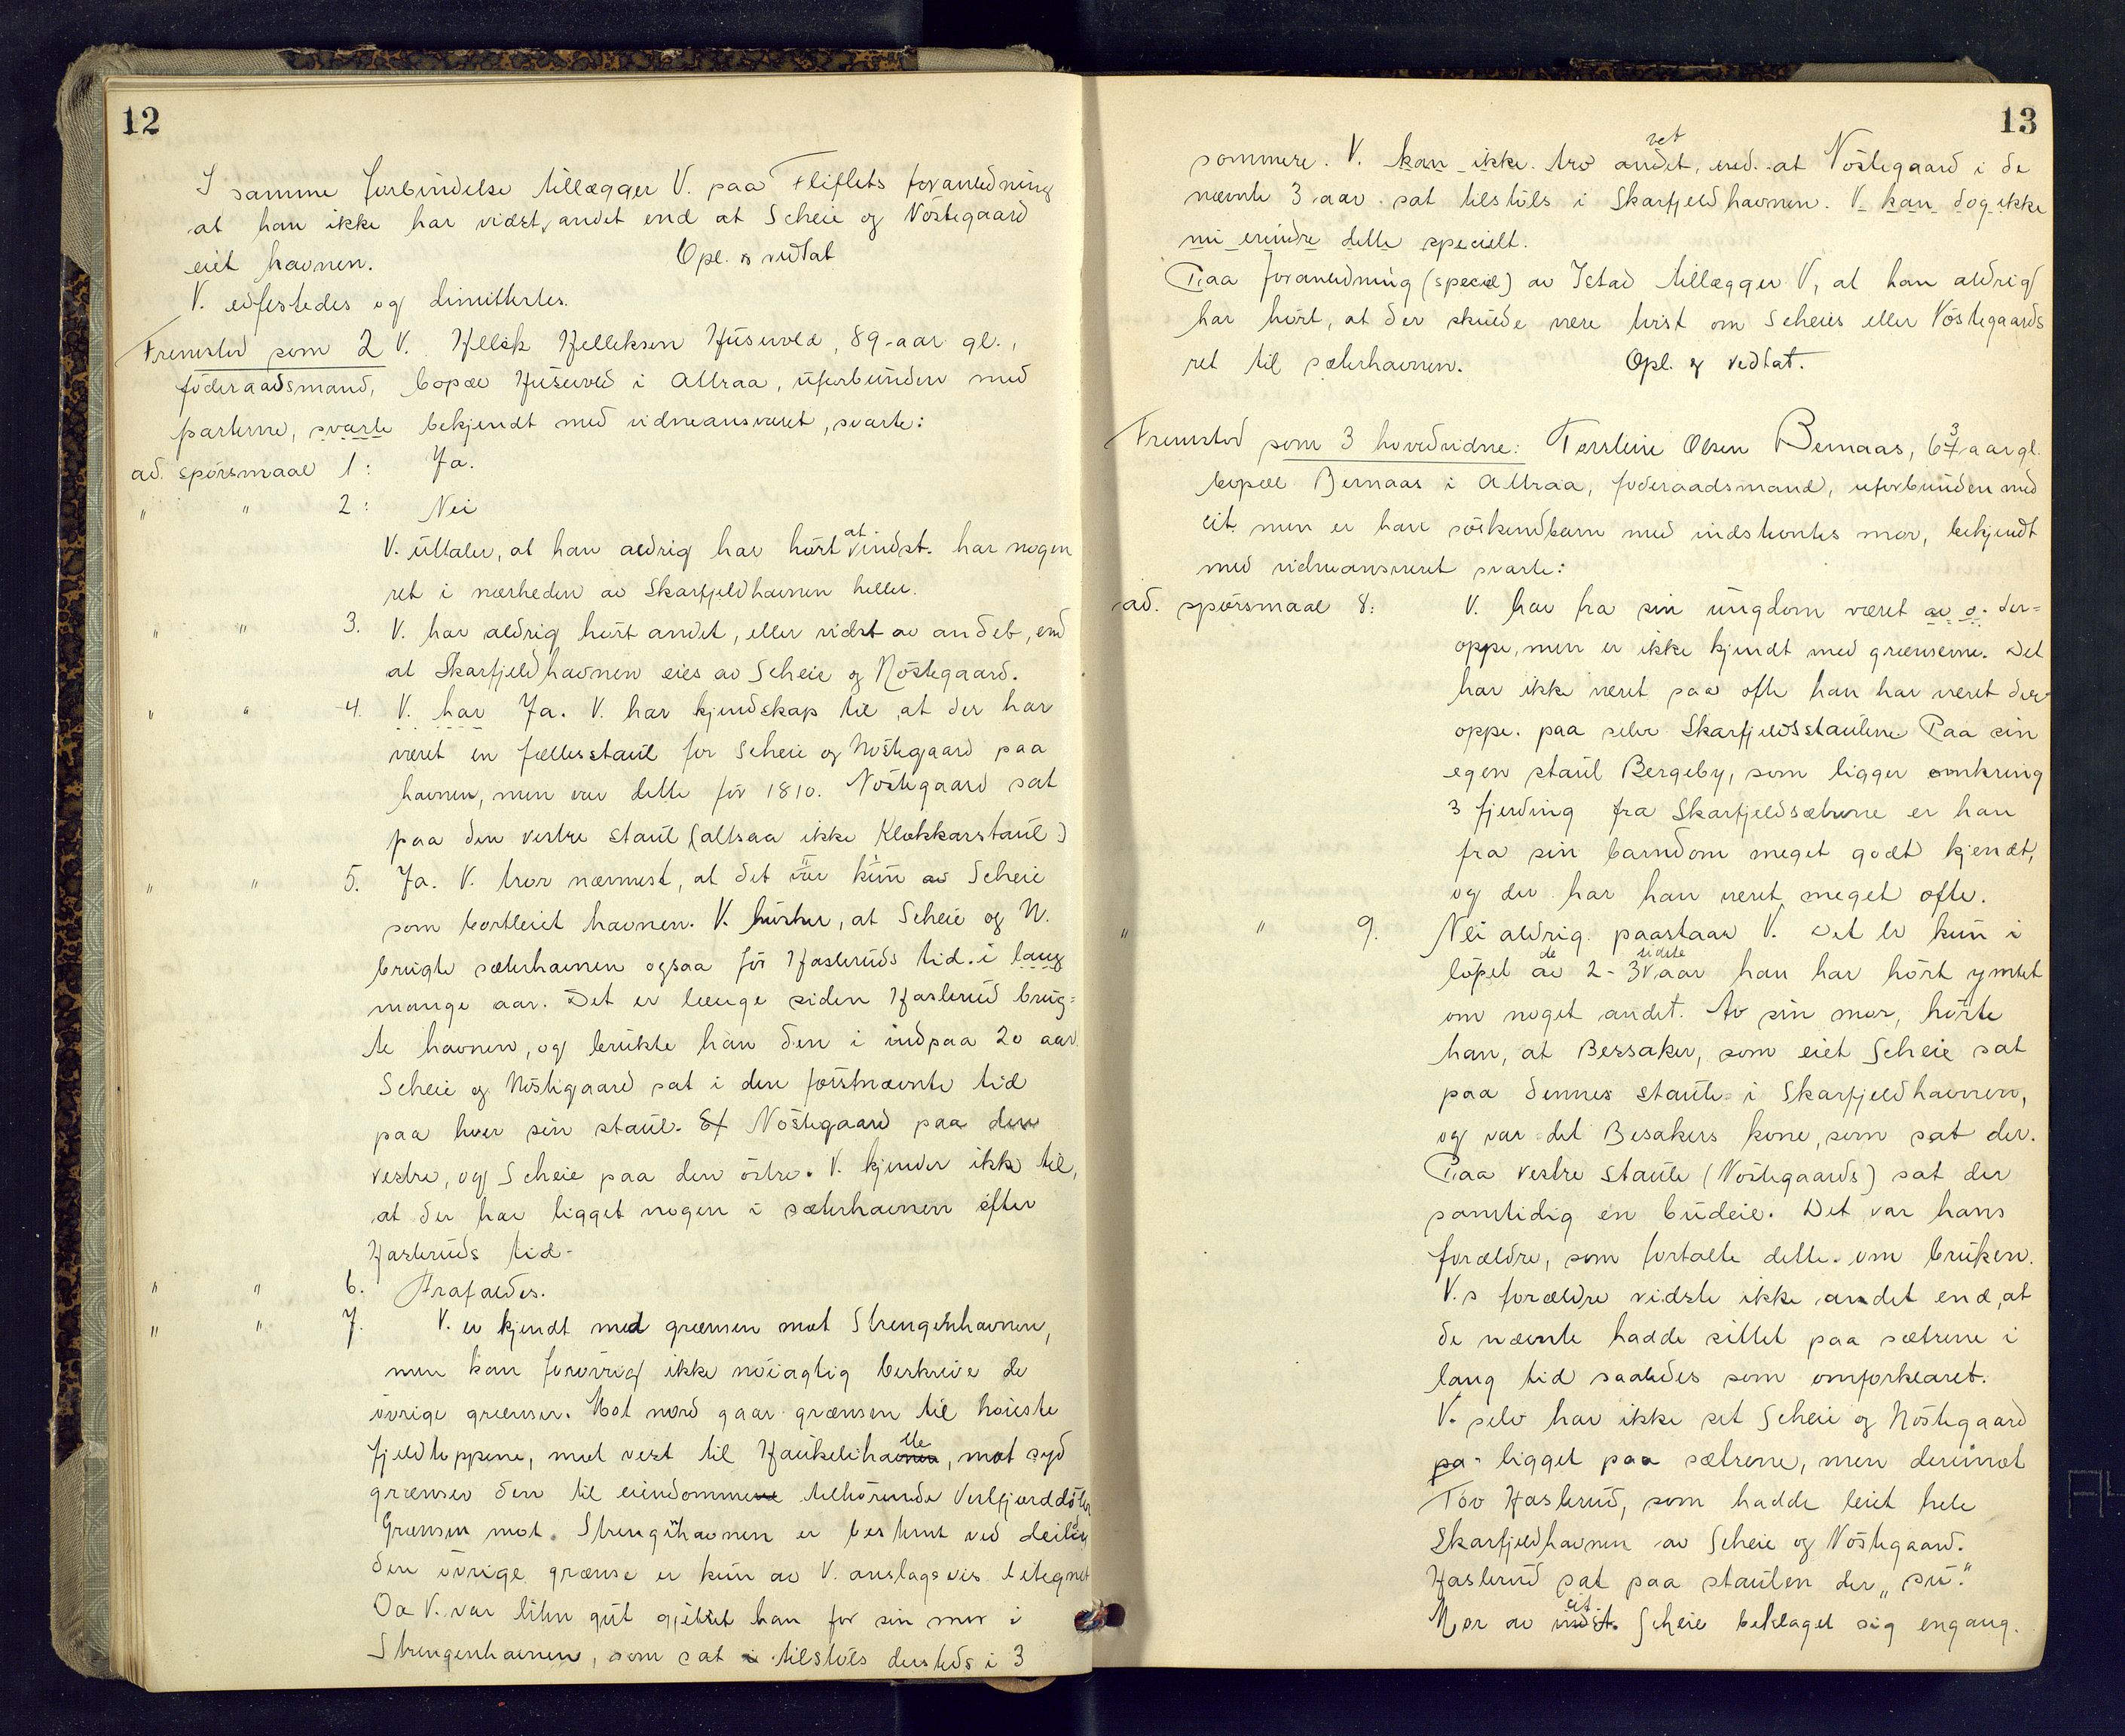 12
I samme forbindelse tillægger V. paa Fliflets foranledning
at han ikke har vidst, andet end at Scheie og Nöstegaard
eiet havnen. Opl. & vedtat
V. edfestedes og dimittertes.
Fremstod som 2 V. Hellek Helleksen Huservold, 89 aar gl.,
föderaadsmand, bopæl i Attraa, uforbunden med
parterne, svarte bekjendt med vidneansvaret, svarte:
ad. spörsmaal 1: Ja.
" " 2: Nei
V. uttaler, at han aldrig har hört at indst. har nogen
ret i nærheden av Skarfjeldhavnen heller.
" " 3. V. har aldrig hört andet, eller vidst av andet, end
at Skarfjeldhavnen eies av Scheie og Nöstegaard.
" " 4. V. har Ja. V. har kjendskap til at der har
været en fællesstaul for Scheie og Nöstegaard paa
havnen, men var dette för 1810. Nöstegaard sat
paa den vestre staul (altsaa ikke Klokkarstaul)
" " 5. Ja. V. tror nærmest, at det var kun av Scheie
som bortleiet havnen. V. husker, at Scheie og N.
brugte sæterhavnen ogsaa för Hasleruds tid i lang
mange aar. Det er længe siden Haslerud brug=
te havnen, og brukte han den i indpaa 20 aar.
Scheie og Nöstegaard sat i den förstnævnte tid
paa hver sin staul. Nöstegaard paa den
vestre, og Scheie paa den östre. V. kjender ikke til,
at der har ligget nogen i sæterhavnen efter
Hasleruds tid.
" " 6. Frafaldes.
" " 7. V. er kjendt med grænsen mot Strengenhavnen,
men kan forövrig ikke nöiagtig beskrive de
övrige grænser. Mot nord gaar grænsen til höieste
fjeldtoppene, mot vest til Haukelihavnen, mot syd
grænser den til eiendommene tilhörende Vestfjorddölen
Grænsen mot Strengenhavnen er bestemt ved deiler,
den övrige grænse er kun av V. anslagsvis betegnet
Da V. var liten gut gjætet han for sin mor i
Strengenhavnen, som sat i tilstöls dersteds i 3
13
sommere. V. kan ikke tro andet, vet end at Nöstegaard i de
nævnte 3 aar sat tilstöls i Skarfjeldhavnen. V. kan dog ikke
nu erindre dette specielt.
Paa foranledning (speciel) av Istad tillægger V, at han aldrig
har hört, at der skulde være tvist om Scheies eller Nöstegaards
ret til sæterhavnen. Opl. & vedtat.
Fremstod som 3 hovedvidne: Torstein Olsen Bernaas, 63 aar gl.
bopæl Bernaas i Attraa, föderaadsmand, uforbunden med
cit. men er han söskendbarn med indstevntes mor, bekjendt
med vidneansvaret svarte:
ad. spörsmaal 8: V. har fra sin ungdom været av o. der=
oppe, men er ikke kjendt med grænserne. Det
har ikke været saa ofte han har været der
oppe. paa selve Skarfjeldsstaulene Paa sin
egen staul Bergeby, som ligger omkring
3 fjerding fra Skarfjeldsætrene er han
fra sin barndom meget godt kjendt,
og der har han været meget ofte.
" " 9. Nei aldrig paastaar V. Det er kun i
löpet av de 2-3 sidste aar han har hört ymtet
om noget andet. Av sin mor, hörte
han, at Bessaker, som eiet Scheie sat
paa dennes staule i Skarfjeldhavnen,
og var det Besakers kone, som sat der.
Paa vestre staule (Nöstegaards) sat der
samtidig en budeie. Det var hans
forældre, som fortalte dette om bruken.
V.s forældre vidste ikke andet end, at
de nævnte hadde sittet paa sætrene i
lang tid saaledes som omforklaret.
V. selv har ikke set Scheie og Nöstegaard
pa ligget paa sætrene, men derimot
Tov Haslerud, som hadde leiet hele
Skarfjeldhavnen av Scheie og Nöstegaard.
Haslerud sat paa staulen der „su".
Mor av indst. cit. Scheie beklaget sig engang.